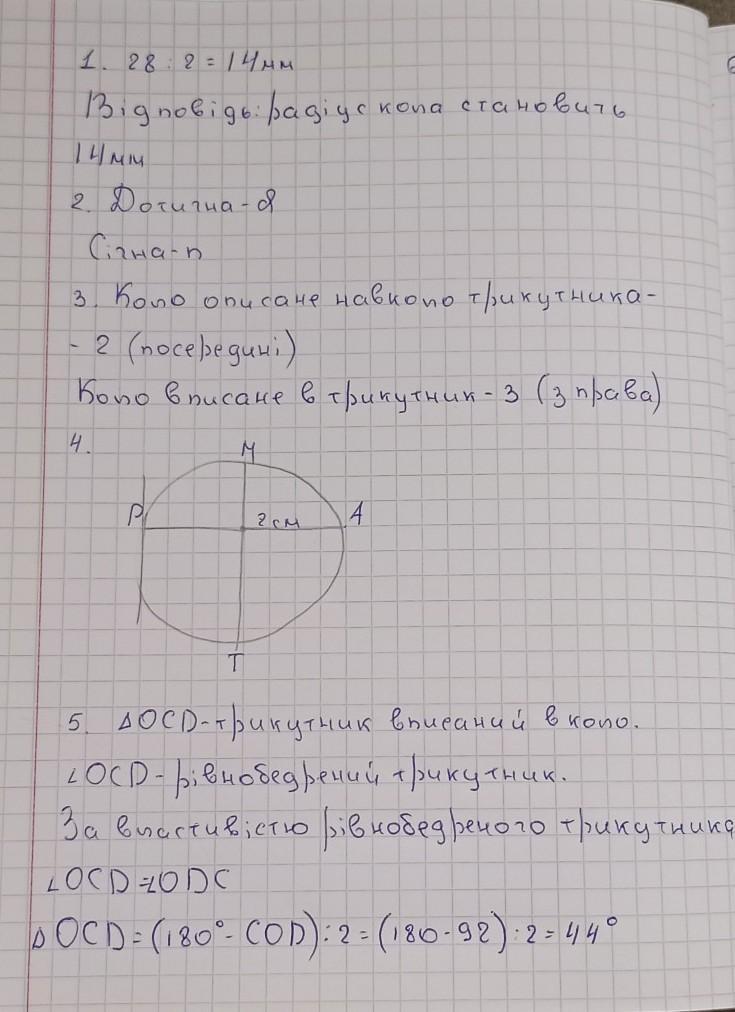 1. 28 : 2 = 14 мм
Відповідь: радіус кола становить
14 мм
2. Дотична - d
Січна - n
3. Коло описане навколо трикутника -
- 2 (посередині)
Коло вписане в трикутник - 3 (з права)
4.
M
P 2 см A
T
5. ΔOCD - трикутник вписаний в коло.
∠OCD - рівнобедрений трикутник.
За властивістю рівнобедреного трикутника
∠OCD = ∠ODC
ΔOCD = (180° - COD) : 2 = (180 - 92) : 2 = 44°